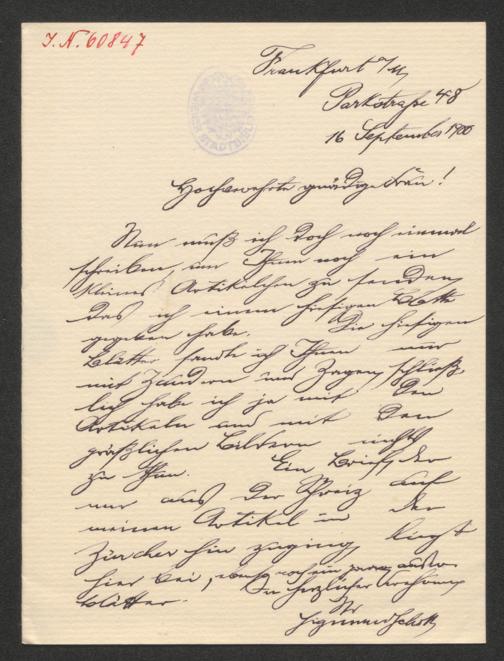 J.N. 60847
Frankfurt a/M
Parkstraße 48
16 September 1900
Hochverehrte gnädige Frau!
Nun muß ich doch noch einmal
schreiben, um Ihnen noch ein
kleines Artikelchen zu senden,
das ich einem hiesigen Blatte
gegeben habe. Die hiesigen
Blätter sandte ich Ihnen nur
mit Zaudern und Zagen, schließ
lich habe ich ja mit den
Artikeln und mit den
gräßlichen Bildern nichts
zu thun. Ein Brief, der
mir aus der Schweiz auf
meinen Artikel in der
Zürcher hin zuging, liegt
hier bei, noch ein paar andere
Blätter. In herzlicher Verehrung
Ihr
Sigmund Schott